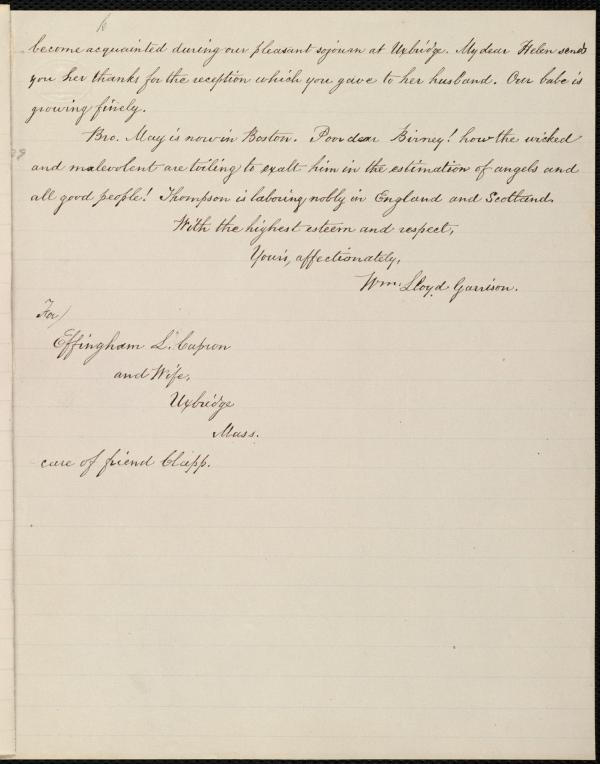 6
become acquainted during our pleasant sojourn at Uxbridge. My dear Helen sends
you her thanks for the reception which you gave to her husband. Our babe is
growing finely.
Bro. May is now in Boston. Poor dear Birney! how the wicked
and malevolent are toiling to exalt him in the estimation of angels and
all good people! Thompson is laboring nobly in England and Scotland.
With the highest esteem and respect,
Yours, affectionately,
Wm. Lloyd Garrison.
For/
Effingham L. Capron
and Wife,
Uxbridge
Mass.
care of friend Clapp.